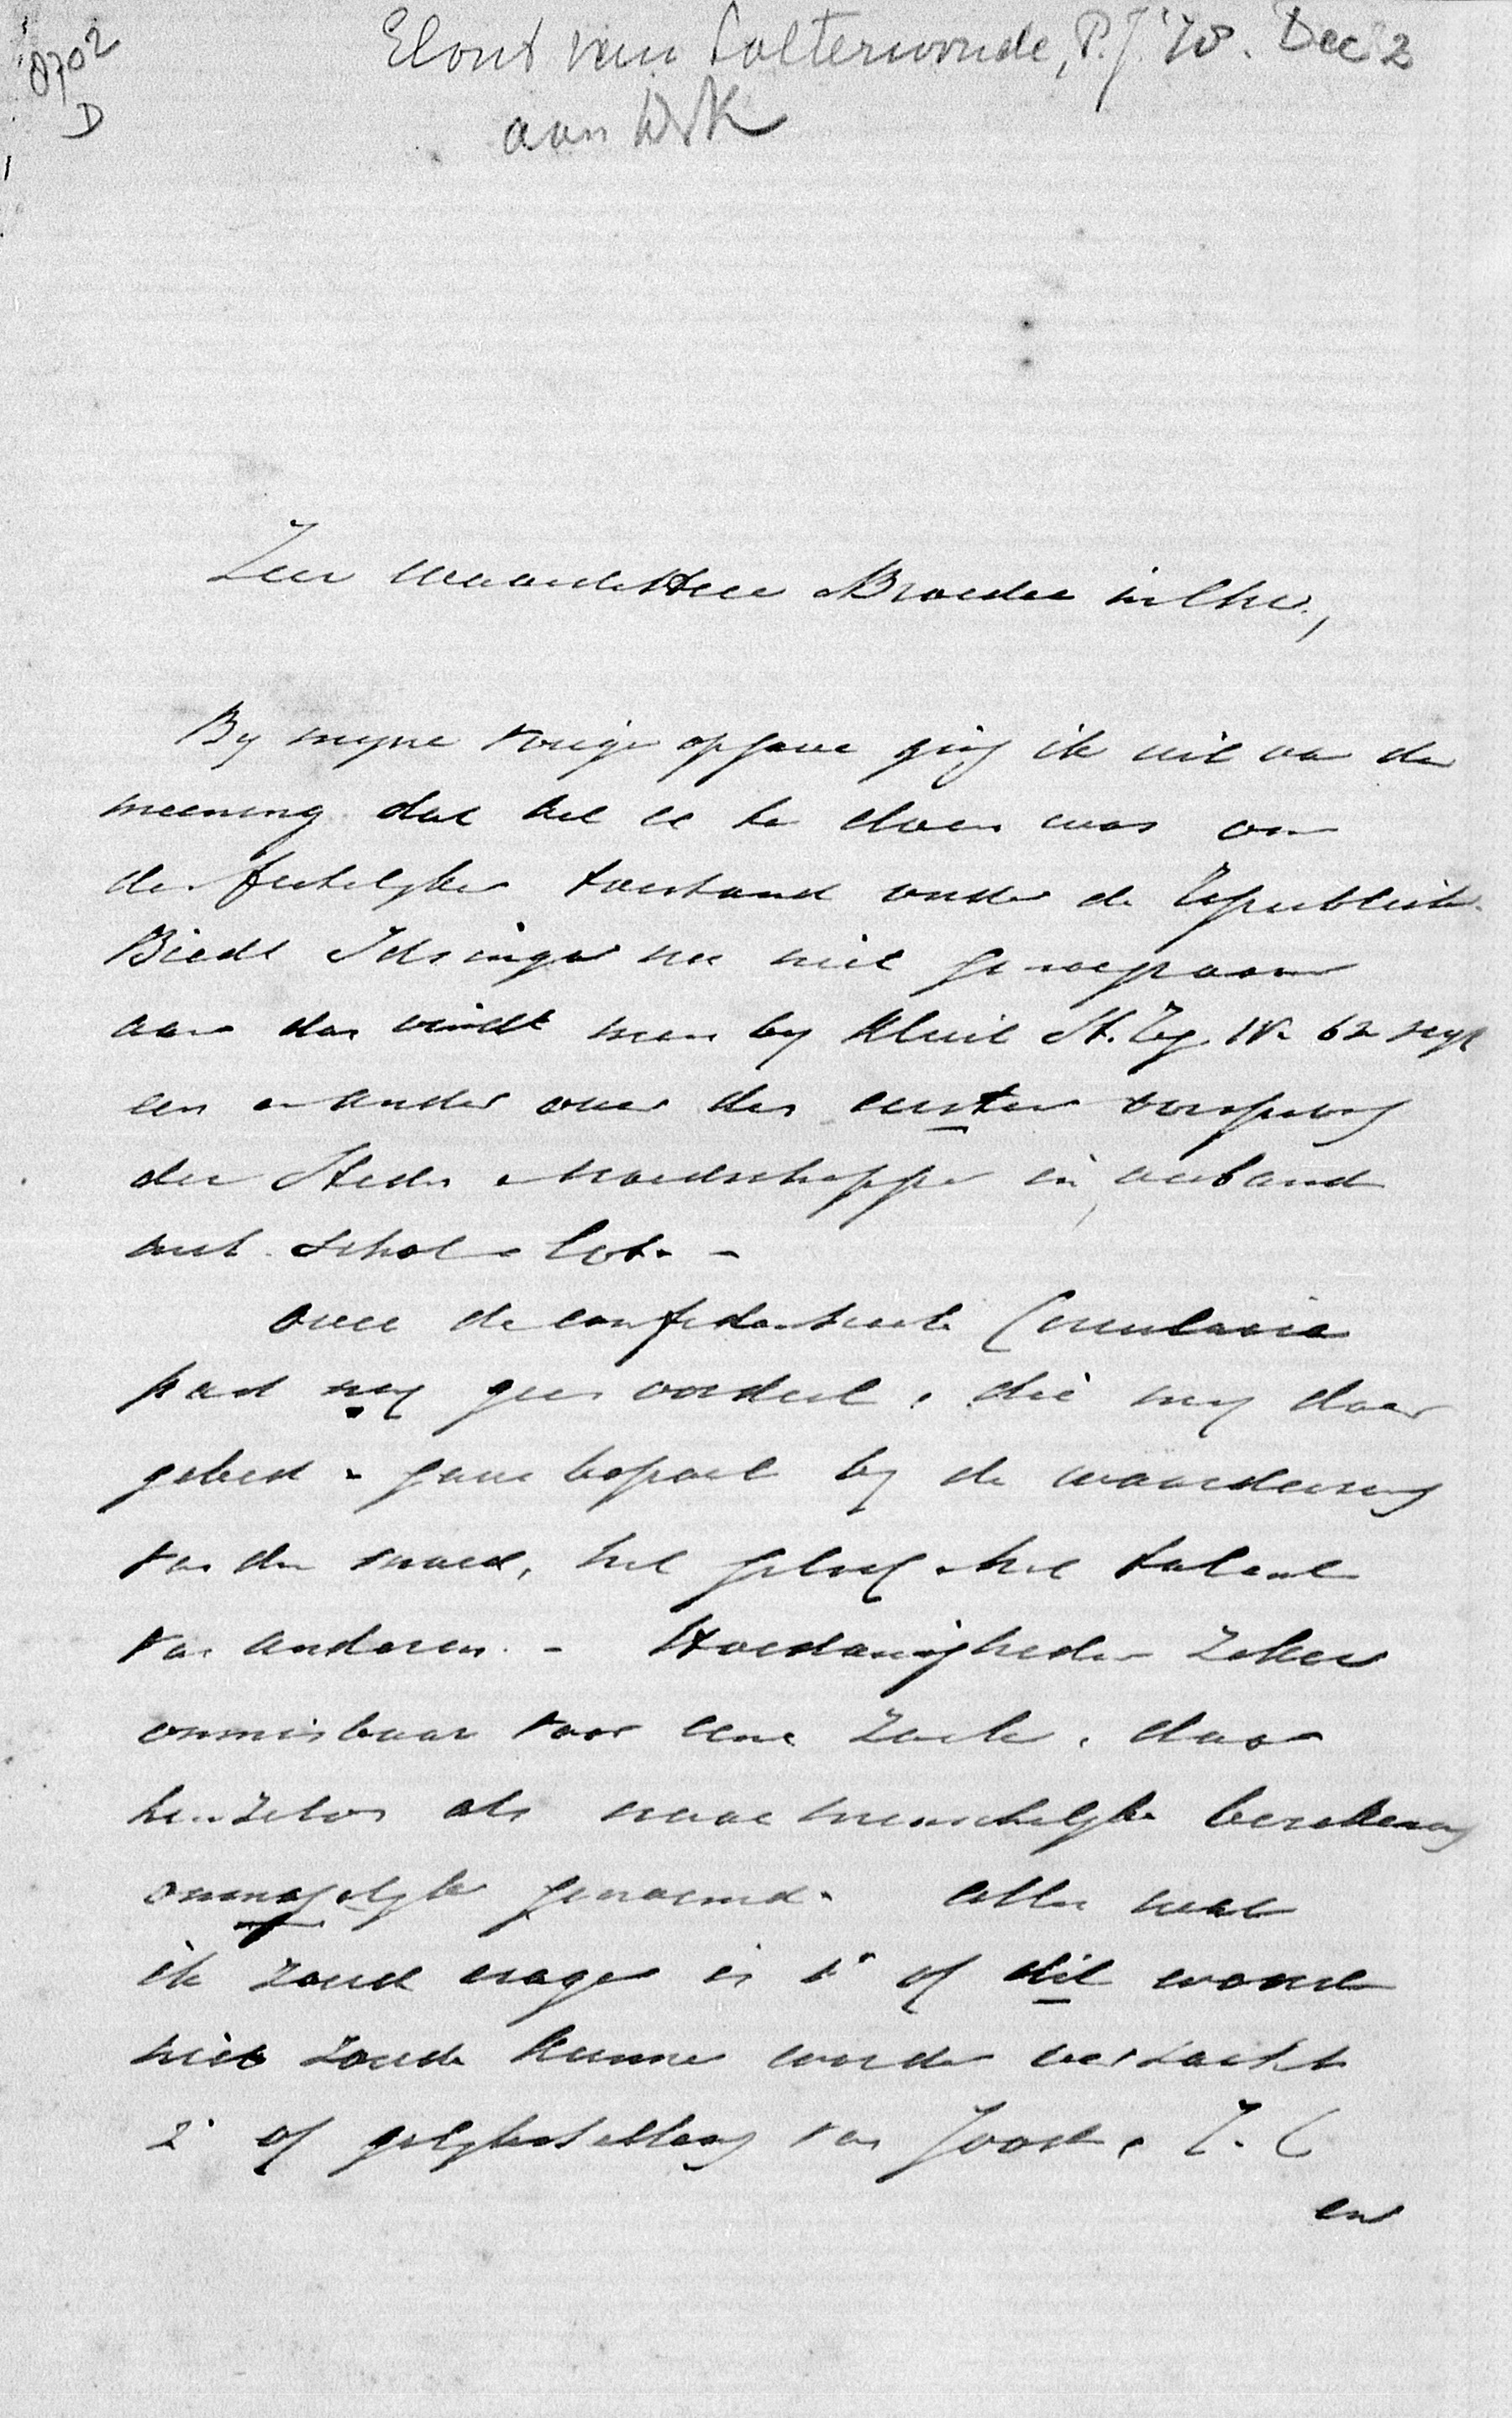 0702
D
Elout van Soeterwoude, P.J. '70. Dec 2
aan
Zeer waarde Heer & Broeder in Chr.,
By myne vorige opgave ging ik uit van de
meening dat het U te doen was om
den feitelyken toestand onder de Republiek.
Biedt Idsinga nu niet genoegzaam
aan dan vindt men by Kluit St. Reg. IV. 62 seqq
een en ander over den eersten oorsprong
der Steden & vroedschappen in verband
met schot en lot. -
Over de confidentieele Circulaire
past my geen oordeel, die my door
gebed en gave bepaal by de waardering
van den moed, het geloof & het talent
van anderen. - Hoedanigheden zeker
onmisbaar voor eene zaak, door
henzelven als naar menschelyke berekening
onmogelyk genoemd. Alles wat
ik zoude vragen is 1° of dit woord
niet zoude kunnen worden verzacht
2° of gelykstelling van Jood, R. C
en